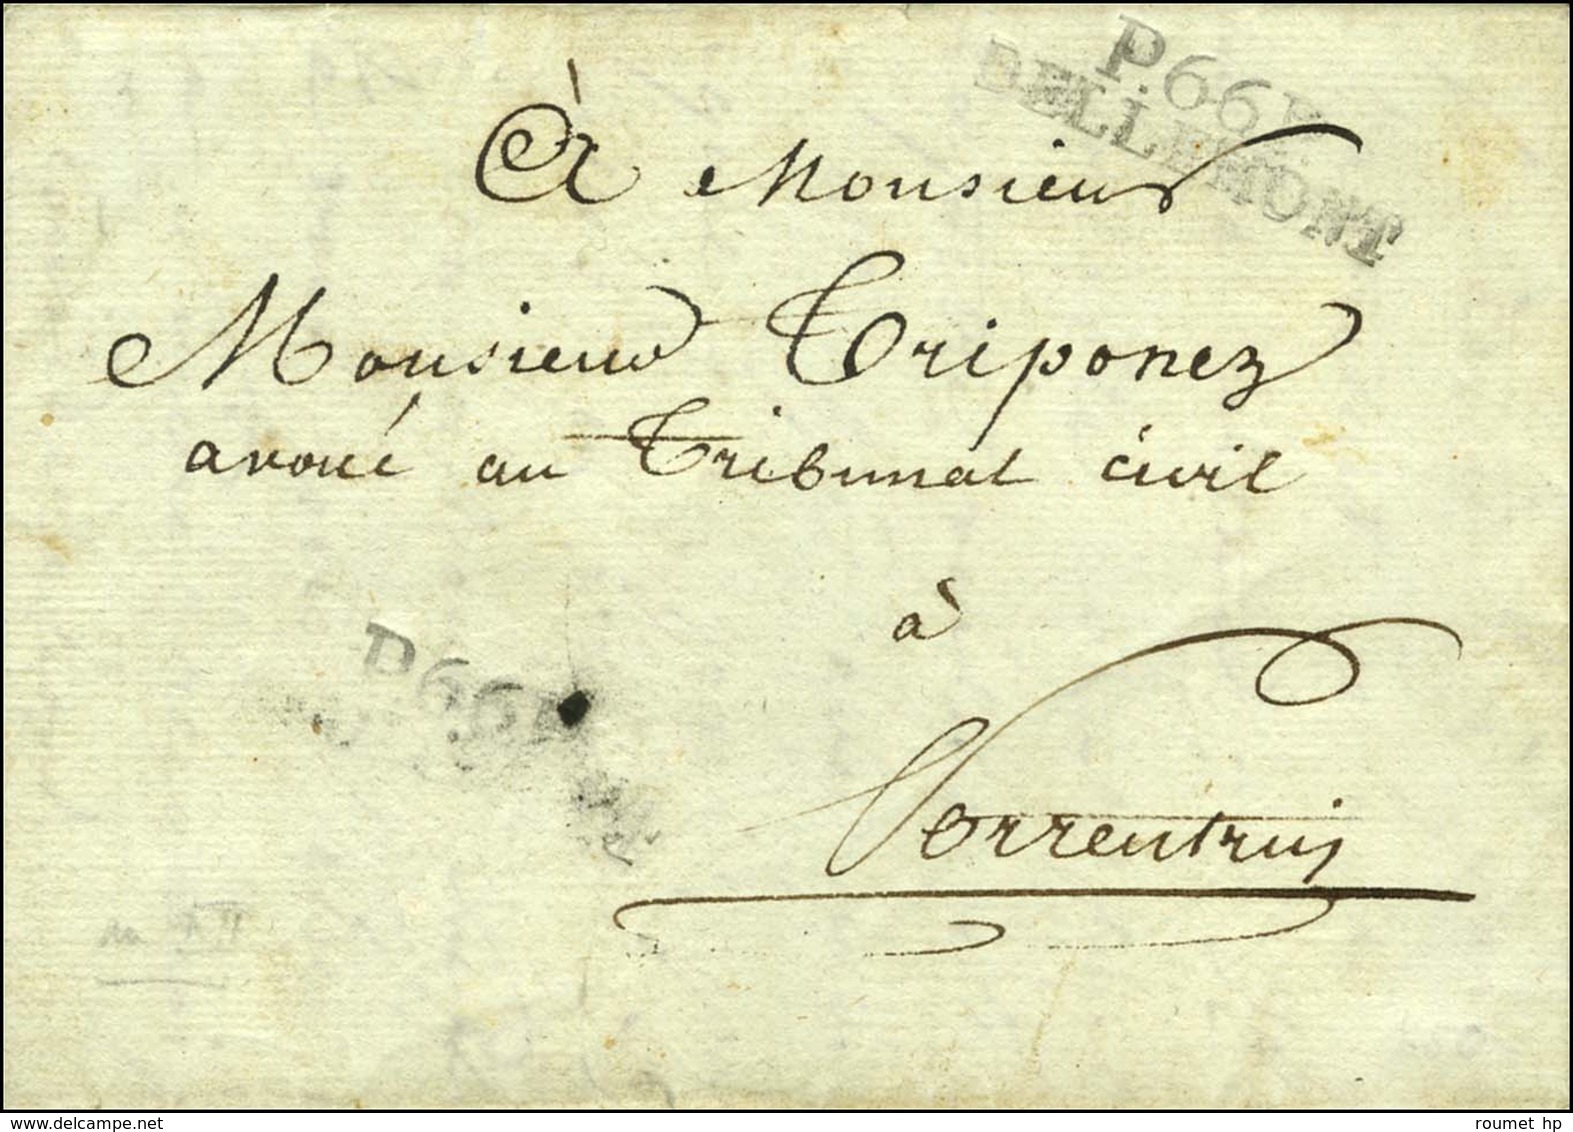 P.66.P.
DELLEMONT
À Monsieur
Monsieur Triponez
avoué au Tribunal civil
à
Porrentruij
P.66.P.
an XII
delcampe.net
roumet hp